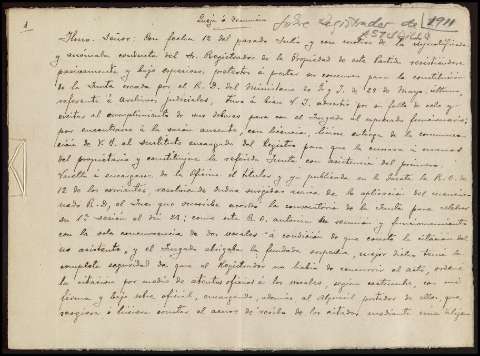 1
Queja ó denuncia
sobre registrador de 1911
ASTUDILLO
Ilmo. Señor: Con fecha 12 del pasado Julio y con motivo de la injustificada
y anómala conducta del Sr. Registrador de la Propiedad de este Partido resistiendose
pasivamente y bajo especiosos pretextos á prestar su concurso para la constitución
de la Junta creada por el R. D. del Ministerio de G. y J. de 29 de Mayo último,
referente á Archivos judiciales, tuvo á bien V. I. advertir por su falta de celo y
excitar al cumplimiento de sus deberes para con el Juzgado al expresado funcionario;
por encontrarse á la sazón ausente, con licencia, hícose entrega de la comunica-
ción de V. I. al sustituto encargado del Registro para que la cursara á manos
del propietario y constituyose la referida Junta con asistencia del primero.
Vuelto á encargarse de la Oficina el titular y ya publicada en la Gaceta la R. O. de
12 de los corrientes, resolutoria de dudas surgidas acerca de la aplicación del mencio-
nado R. D., el Juez que suscribe acordó la convocatoria de la Junta para celebrar
su 1ª sesión el día 21; como esta R. O. autoriza su reunión y funcionamiento
con la sola concurrencia de dos vocales á condición de que conste la citación del
no asistente, y el Juzgado abrigaba la fundada sospecha, mejor dicho tenía la
completa seguridad de que el Registrador no había de concurrir al acto, ordenó
la citación por medio de atentos oficios á los vocales, según costumbre, con mi
firma y bajo sobre oficial, encargando, además, al Alguacil portador de ellos, que
recogiera é hiciera constar el acuse de recibo de los citados mediante una